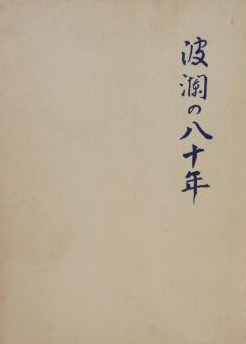 波瀾の八十年